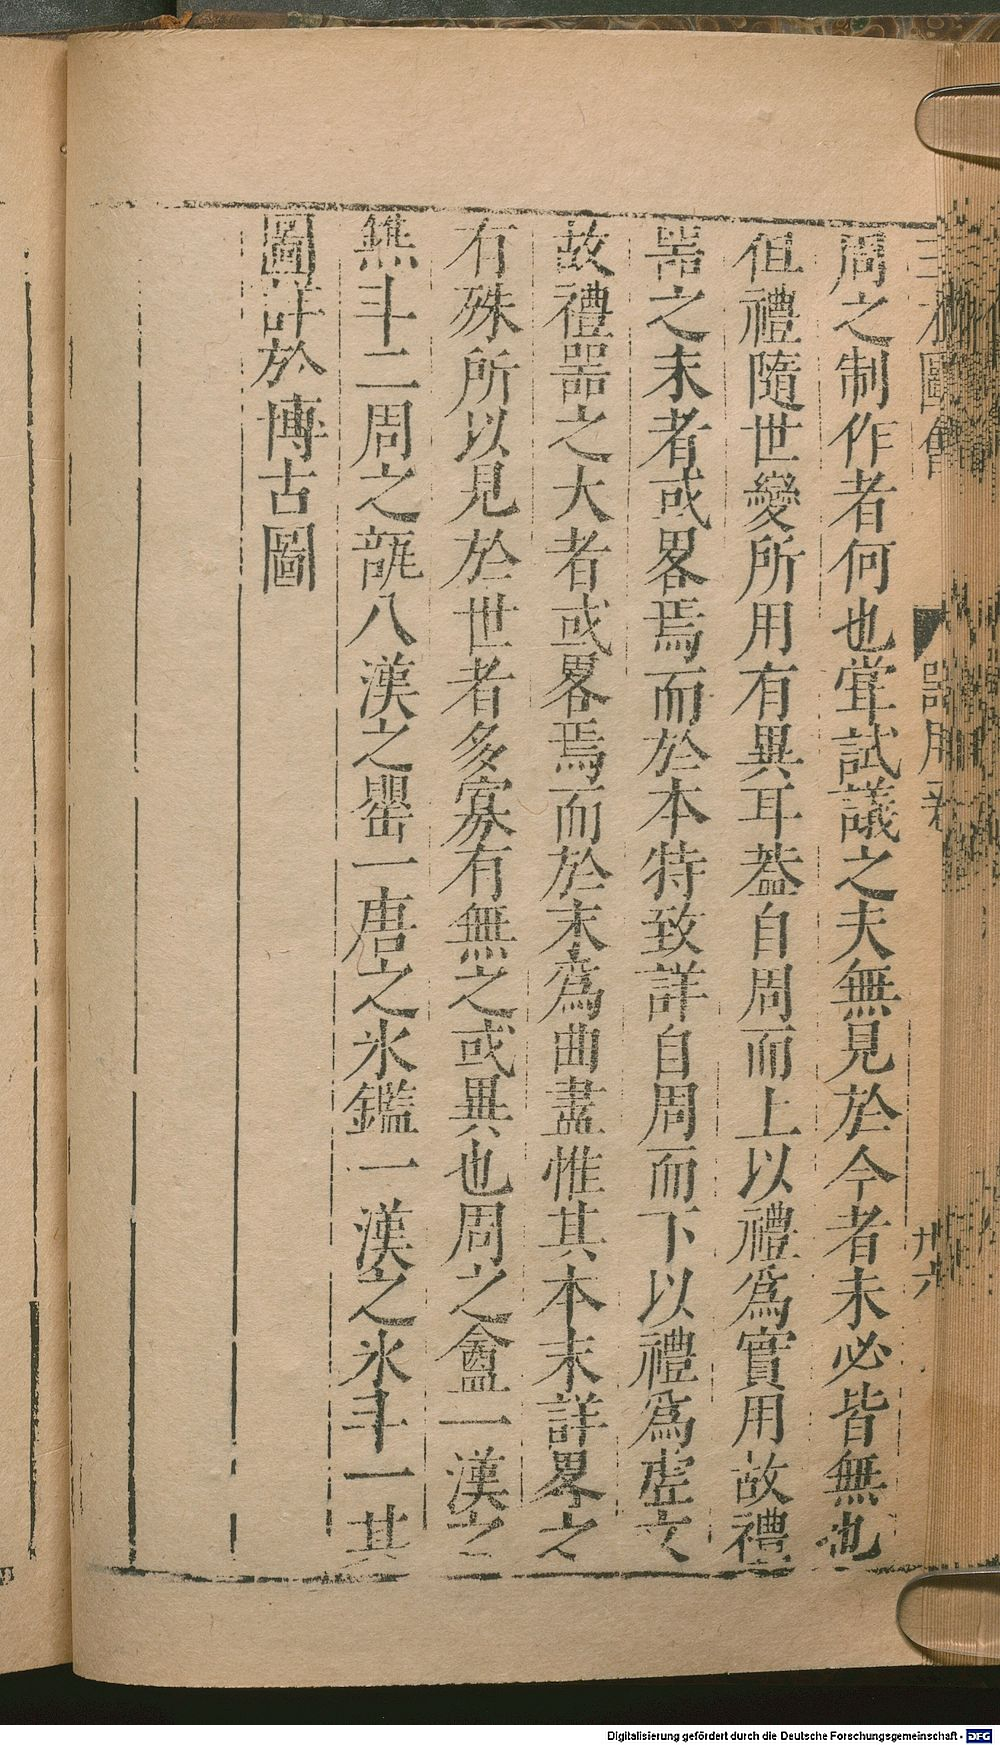 三才圖會
器用
廿六
周之制作者何也甞試議之夫無見於今者未必皆無也
但禮隨世變所用有異耳葢自周而上以禮爲實用故禮
噐之末者或畧焉而於本特致詳自周而下以禮爲虗文
故禮噐之大者或畧焉而於末爲曲盡惟其本末詳畧之
有殊所以見於世者多寡有無之或異也周之盦一漢之
鐎斗二周之㼽八漢之罌一唐之氷鑑一漢之氷斗一其
圖詳於博古圖
Digitalisierung gefördert durch die Deutsche Forschungsgemeinschaft - DFG